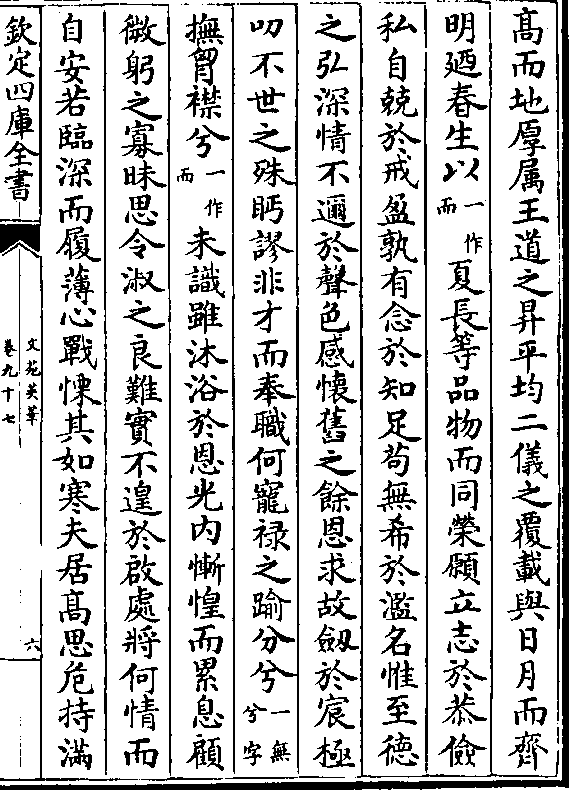 髙而地厚属王道之昇平均二儀之覆載與日月而齊
明廼春生以一作而夏長等品物而同榮願立志於恭儉
私自兢於戒盈孰有念於知足苟無希於濫名惟至德
之弘深情不邇於聲色感懷舊之餘恩求故劔於宸極
叨不世之殊眄謬非才而奉職何寵禄之踰分兮一無兮字
撫胷襟兮一作而未識雖沐浴於恩光内慚惶而累息顧
微躬之寡昧思令淑之良難實不遑於啟處將何情而
自安若臨深而履薄心戰慄其如寒夫居髙思危持滿
欽定四庫全書
文苑英華
卷九十七
六